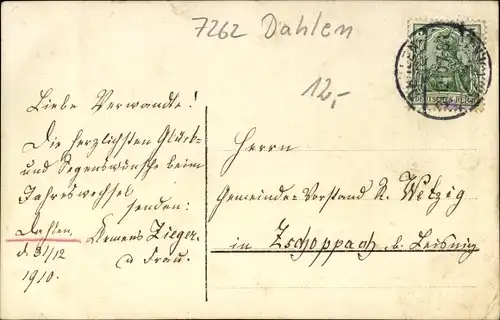 7262 Dahlen
12,-
DEUTSCHES REICH
Liebe Verwandte!
Die herzlichsten Glück-
und Segenswünsche beim
Jahreswechsel
senden:
Klemens Zieger.
d. 31/12
u Frau.
1910.
Herrn
Gemeinde Vorstand R. Wetzig
in Zschoppach b. Leisnig